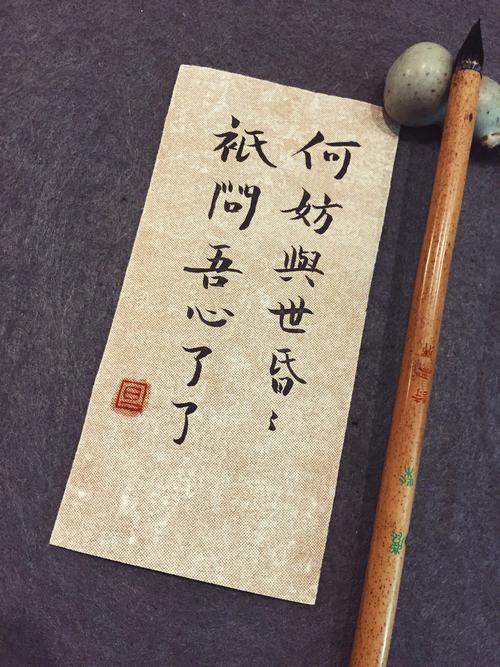 何妨與世昏〻
祇問吾心了了